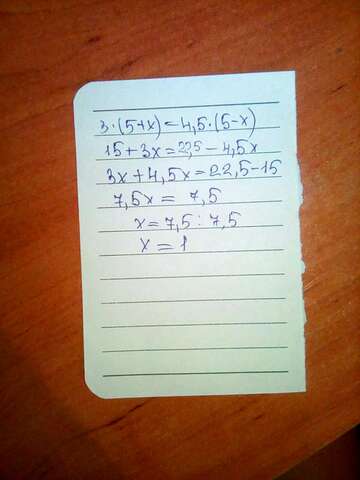 3·(5+x)=4,5·(5-x)
15+3x=22,5-4,5x
3x+4,5x=22,5-15
7,5x=7,5
x=7,5:7,5
x=1